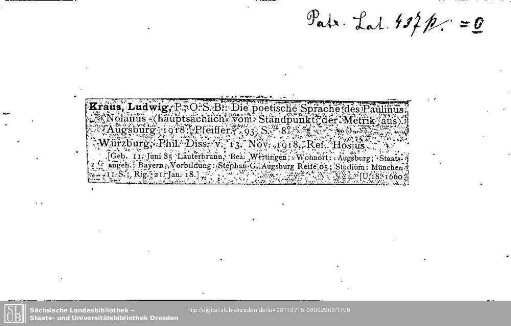 Patr. Lat. 437 p. = 0
Kraus, Ludwig, P. O. S. B.: Die poetische Sprache des Paulinus
Nolanus (hauptsächlich vom Standpunkt der Metrik aus).
Augsburg 1918: Pfeiffer. 93 S. 8°
Würzburg, Phil. Diss. v. 13. Nov. 1918, Ref. Hosius
[Geb. 11. Juni 85 Lauterbrunn, Bez. Wertingen; Wohnort: Augsburg; Staats-
angeh.: Bayern; Vorbildung: Stephan-G. Augsburg Reife 05; Studium: München
11 S.; Rig. 21. Jan. 18.] [U 18. 1660
SLUB
Sächsische Landesbibliothek –
Staats- und Universitätsbibliothek Dresden